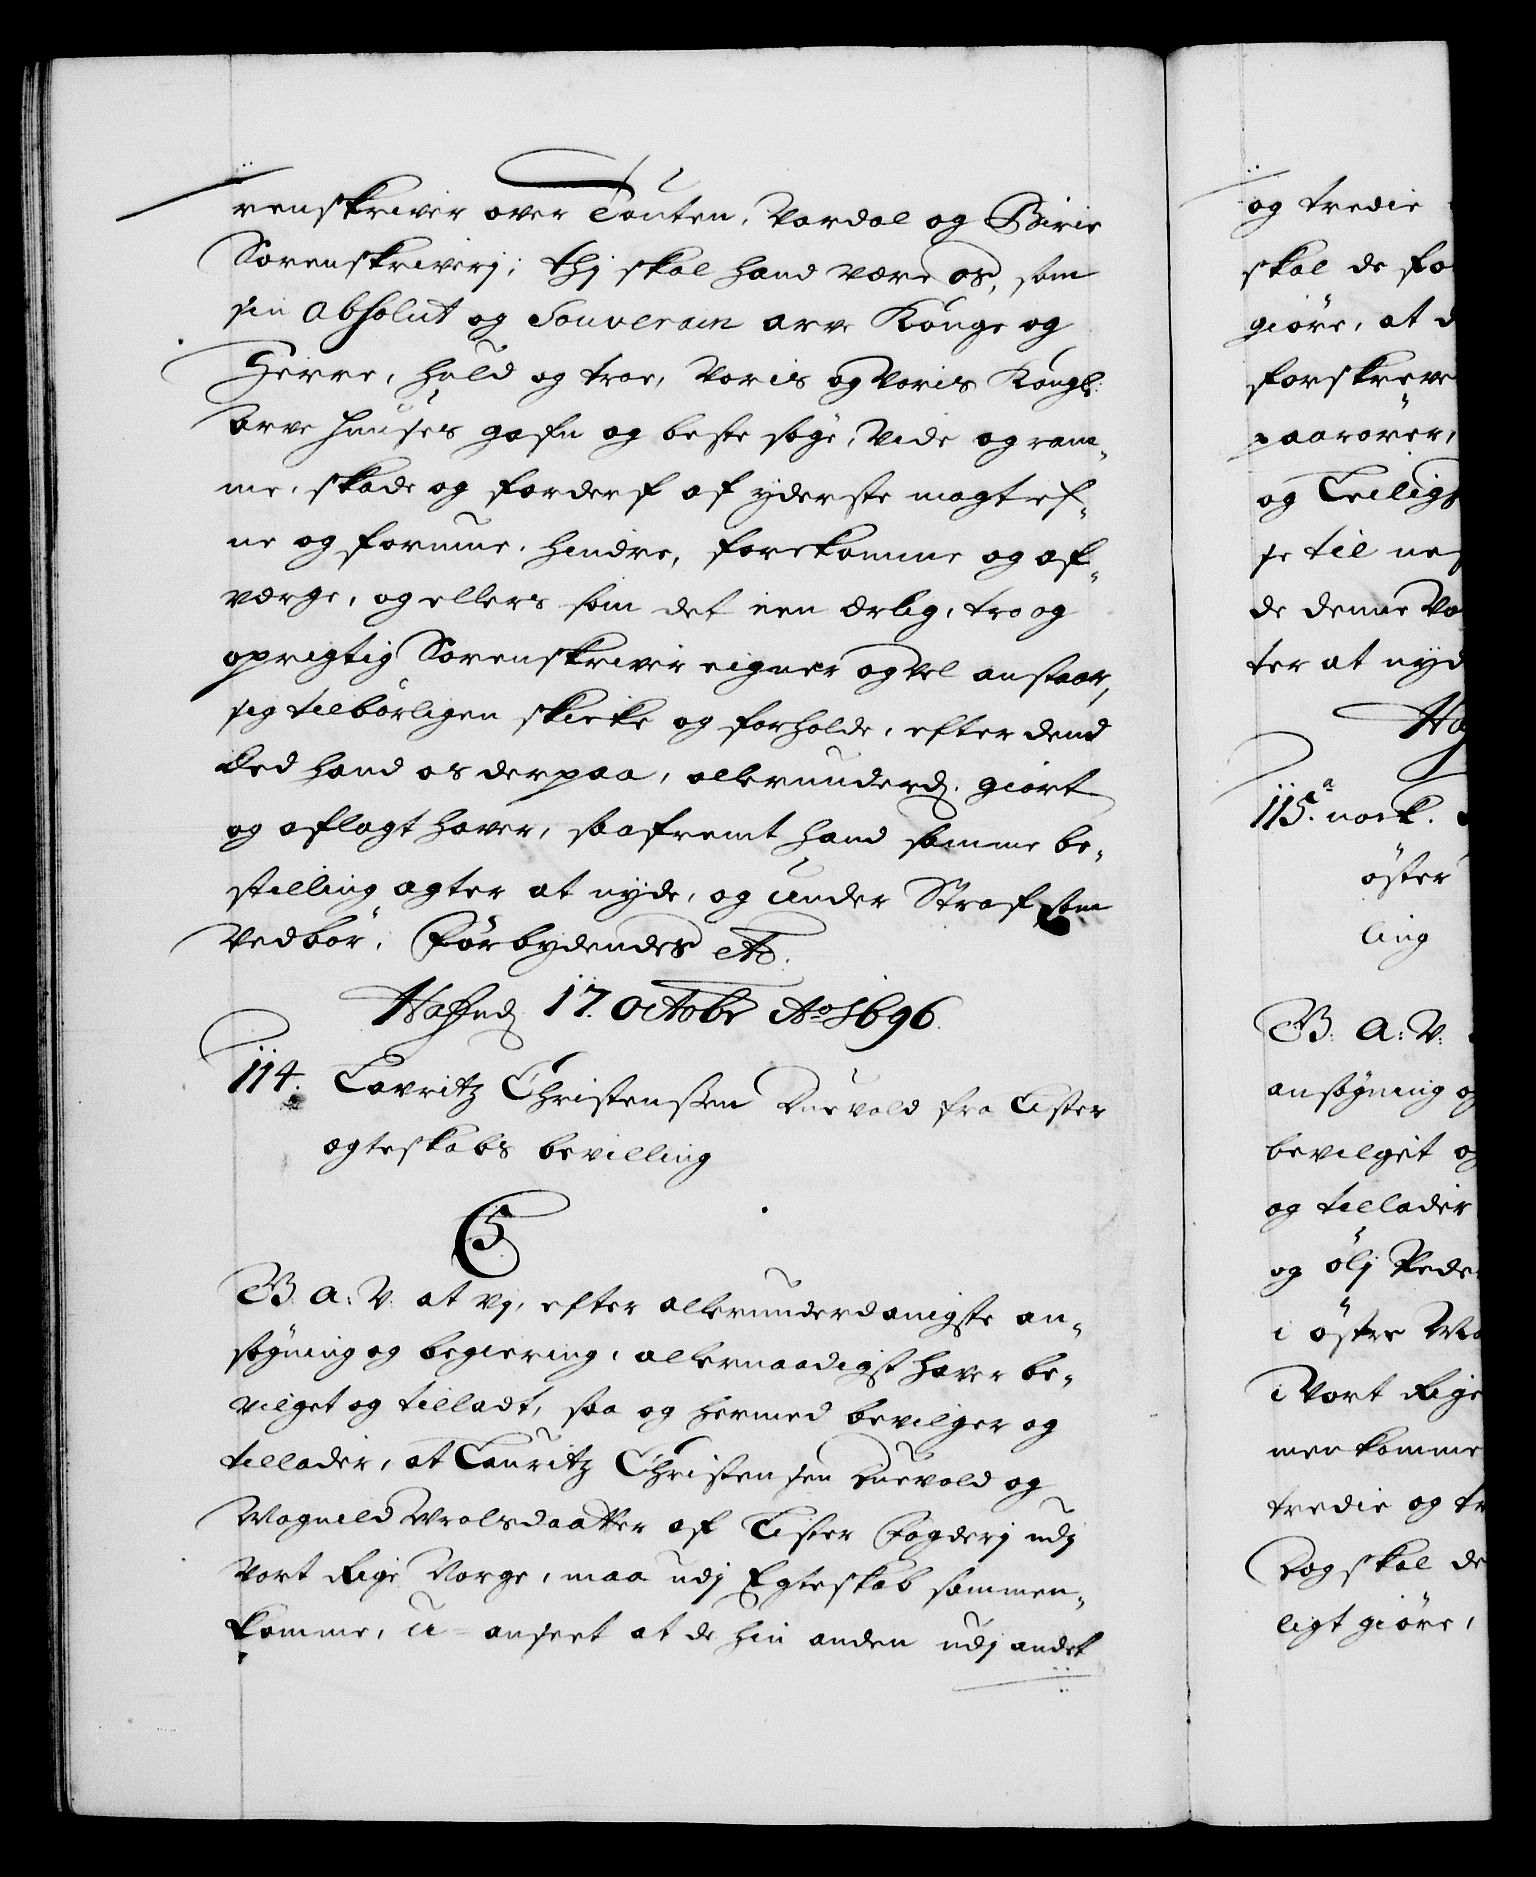 renskriver over Touten, Vardal og Birie
Sorenskriverj; thj skal hand være os, som
sin absolut og Souverain arve Konge og
Herre, huld og troe, Voris og Voris Kongl:
arve huuses gafn og beste søge, Vide og ram¬
me, skade og forderf af yderste magt ef¬
ne og formue, hindre, forekomme og af¬
værge, og ellers som det een ærlig, tro og
oprigtig Sorenskriver eigner og vel anstaar,
sig tilbørligen skicke og forholde, efter dend
Eed hand os derpaa, allerunderd. giort
og aflagt haver, saafremt hand samme be¬
stilling agter at nyde, og under Straf som
Vedbør. Forbydendes etc.
Hafned 17. Octobr Ao 1696.
114. Lavritz Christenssen Duevold fra Lister
egteskabs bevilling
C5
G. A: V. at Vj, efter allerunderdanigste an¬
søgning og begiering, allernaadigst haver be¬
vilget og tilladt, saa og hermed bevilger og
tillader, at Lauritz Christensen Duevold og
Magnild Wralsdaatter af Lister Fogderj udj
Vort Rige Norge, maa udj Egteskab sammen¬
komme, u-anseet at de hin anden udj andet
og tredie
skal de
giøre, at
forskreve
paarører,
og Leilig
se til
de denne
ter at nyd
115. a nock.
öster
ling
G. A: V:
ansøgning og
bevilget og
og tillader
og ölj Peder
i östre
i Vort Rige
men komme
tredie og
Dog skal de
ligt giöre,